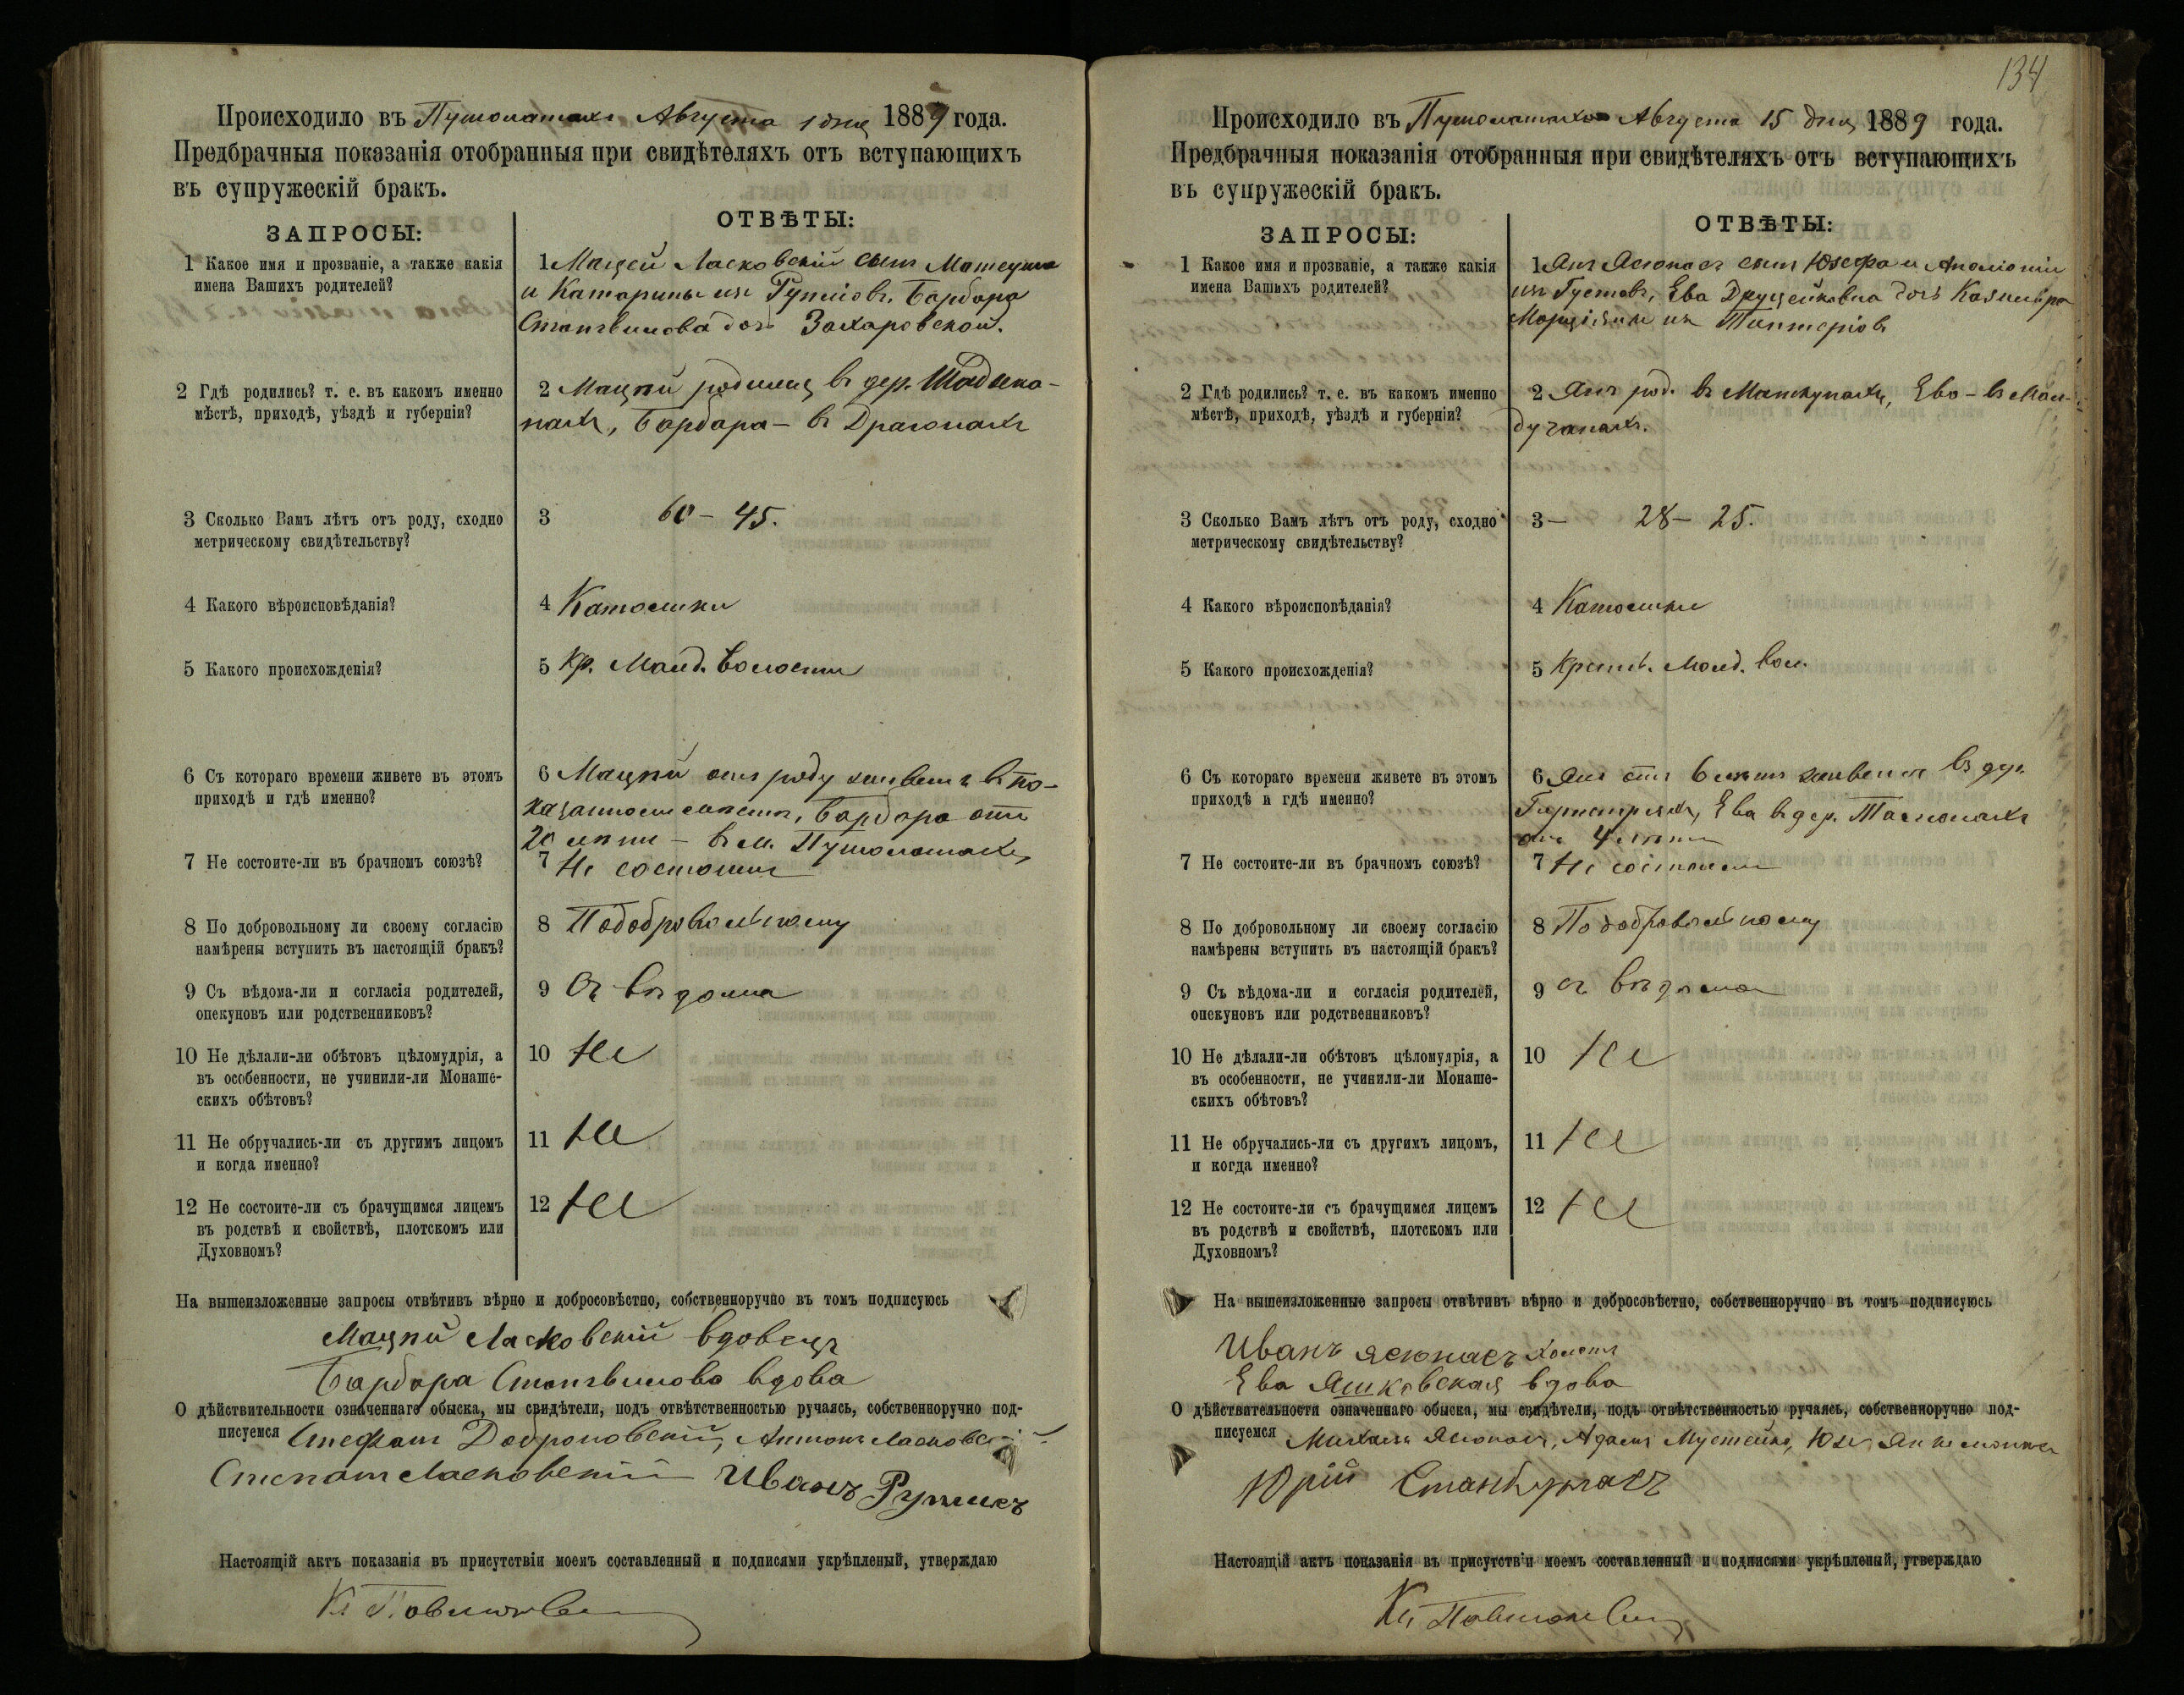 Происходило въ Пушолатахъ Августа 1 дня 1889 года.
Предбрачныя показанія отобранныя при свидѣтеляхъ отъ вступающихъ
въ супружескій бракъ.
ЗАПРОСЫ:
ОТВѢТЫ:
1 Какое имя и прозваніе, а также какія
имена Вашихъ родителей?
1 Мацей Ласковскій сынъ Матеуша
и Катарины изъ Барбара
дочь Захаровской.
2 Гдѣ родились? т. е. въ какомъ именно
мѣстѣ, приходѣ, уѣздѣ и губерніи?
2 Мацѣй родился въ дер.
Барбара – въ Драгонахъ
3 Сколько Вамъ лѣтъ отъ роду, сходно
метрическому свидѣтельству?
3 60 – 45.
4 Какого вѣроисповѣданія?
4 Католики
5 Какого происхожденія?
5 Кр. волости
6 Съ котораго времени живете въ этомъ
приходѣ и гдѣ именно?
6 Мацѣй отъ роду живетъ въ по-
казанномъ мѣстѣ, Барбара отъ
20 лѣтъ – въ м. Пушолатахъ
7 Не состоите-ли въ брачномъ союзѣ?
7 Не состоимъ
8 По добровольному ли своему согласію
намѣрены вступить въ настоящій бракъ?
8 По добровольному
9 Съ вѣдома-ли и согласія родителей,
опекуновъ или родственниковъ?
9 Съ вѣдома
10 Не дѣлали-ли обѣтовъ цѣломудрія, а
въ особенности, не учинили-ли Монаше-
скихъ обѣтовъ?
10 Не
11 Не обручались-ли съ другимъ лицомъ
и когда именно?
11 Не
12 Не состоите-ли съ брачущимся лицемъ
въ родствѣ и свойствѣ, плотскомъ или
Духовномъ?
12 Не
На вышеизложенные запросы отвѣтивъ вѣрно и добросовѣстно, собственноручно въ томъ подписуюсь
Мацѣй Ласковскій вдовецъ
Барбара вдова
О дѣйствительности означеннаго обыска, мы свидѣтели, подъ отвѣтственностью ручаясь, собственноручно под-
писуемся Стефанъ Антонъ
Степанъ Ласковскій Иванъ
Настоящій актъ показанія въ присутствіи моемъ составленный и подписями укрѣпленый, утверждаю
134
Происходило въ Пушолатахъ Августа 15 дня 1889 года.
Предбрачныя показанія отобранныя при свидѣтеляхъ отъ вступающихъ
въ супружескій бракъ.
ЗАПРОСЫ:
ОТВѢТЫ:
1 Какое имя и прозваніе, а также какія
имена Вашихъ родителей?
1 Янъ Ясюнасъ сынъ Юзефа и Аполоніи
изъ Ева дочь Казимира
изъ
2 Гдѣ родились? т. е. въ какомъ именно
мѣстѣ, приходѣ, уѣздѣ и губерніи?
2 Янъ род. въ Ева – въ
3 Сколько Вамъ лѣтъ отъ роду, сходно
метрическому свидѣтельству?
3 – 28 – 25.
4 Какого вѣроисповѣданія?
4 Католики
5 Какого происхожденія?
5 Крест. вол.
6 Съ котораго времени живете въ этомъ
приходѣ и гдѣ именно?
6 Янъ отъ 6 лѣтъ живетъ въ дер.
Ева въ дер.
отъ 4 лѣтъ
7 Не состоите-ли въ брачномъ союзѣ?
7 Не состоимъ
8 По добровольному ли своему согласію
намѣрены вступить въ настоящій бракъ?
8 По добровольному
9 Съ вѣдома-ли и согласія родителей,
опекуновъ или родственниковъ?
9 съ вѣдома
10 Не дѣлали-ли обѣтовъ цѣломудрія, а
въ особенности, не учинили-ли Монаше-
скихъ обѣтовъ?
10 Не
11 Не обручались-ли съ другимъ лицомъ,
и когда именно?
11 Не
12 Не состоите-ли съ брачущимся лицемъ
въ родствѣ и свойствѣ, плотскомъ или
Духовномъ?
12 Не
На вышеизложенные запросы отвѣтивъ вѣрно и добросовѣстно, собственноручно въ томъ подписуюсь
Иванъ Ясюнасъ
Ева вдова
О дѣйствительности означеннаго обыска, мы свидѣтели, подъ отвѣтственностью ручаясь, собственноручно под-
писуемся Адамъ
Юрій
Настоящій актъ показанія въ присутствіи моемъ составленный и подписями укрѣпленый, утверждаю